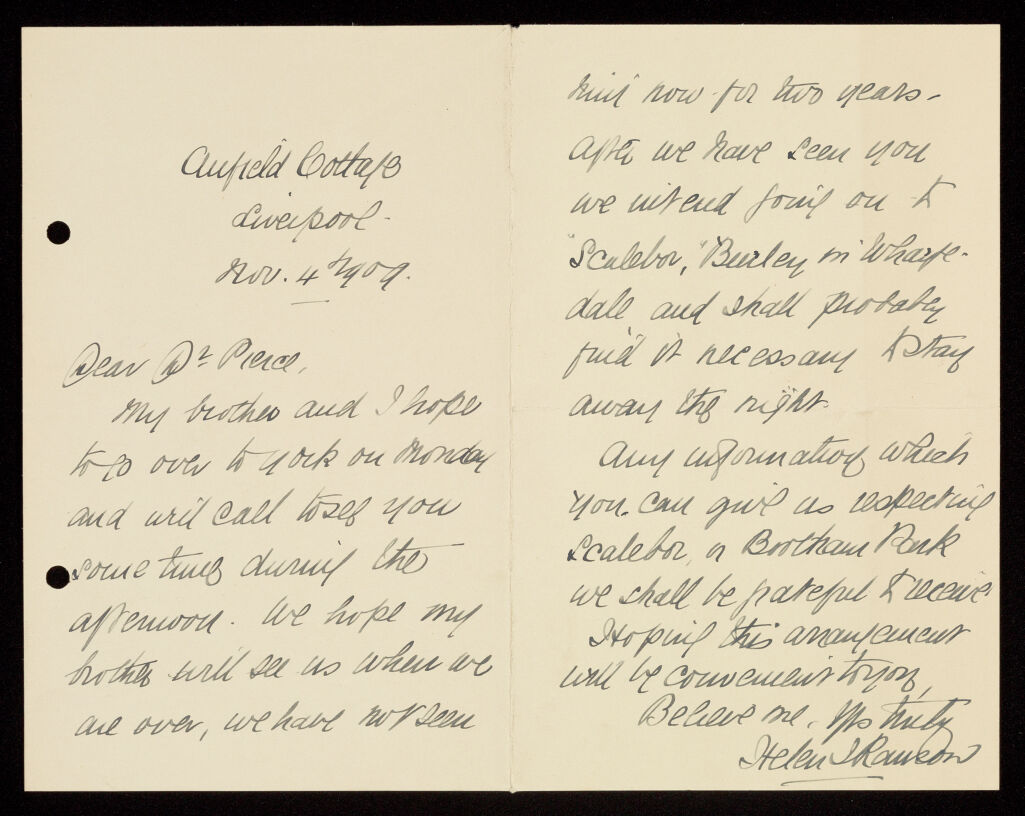 Anfield Cottage
Liverpool.
Nov. 4th 1909.
Dear Dr Pierce,
My brother and I hope
to go over to York on Monday
and will call to see you
some time during the
afternoon. We hope my
brother will see us when we
are over, we have not seen
him now for two years -
After we have seen you
we intend going on to
"Scalebor," Burley in Wharfe-
dale and shall probably
find it necessary to stay
away the night.
Any information which
you can give us respecting
Scalebor, or Bootham Park
we shall be grateful to receive
Hoping this arrangement
will be convenient to you,
Believe me. Yrs truly
Helen